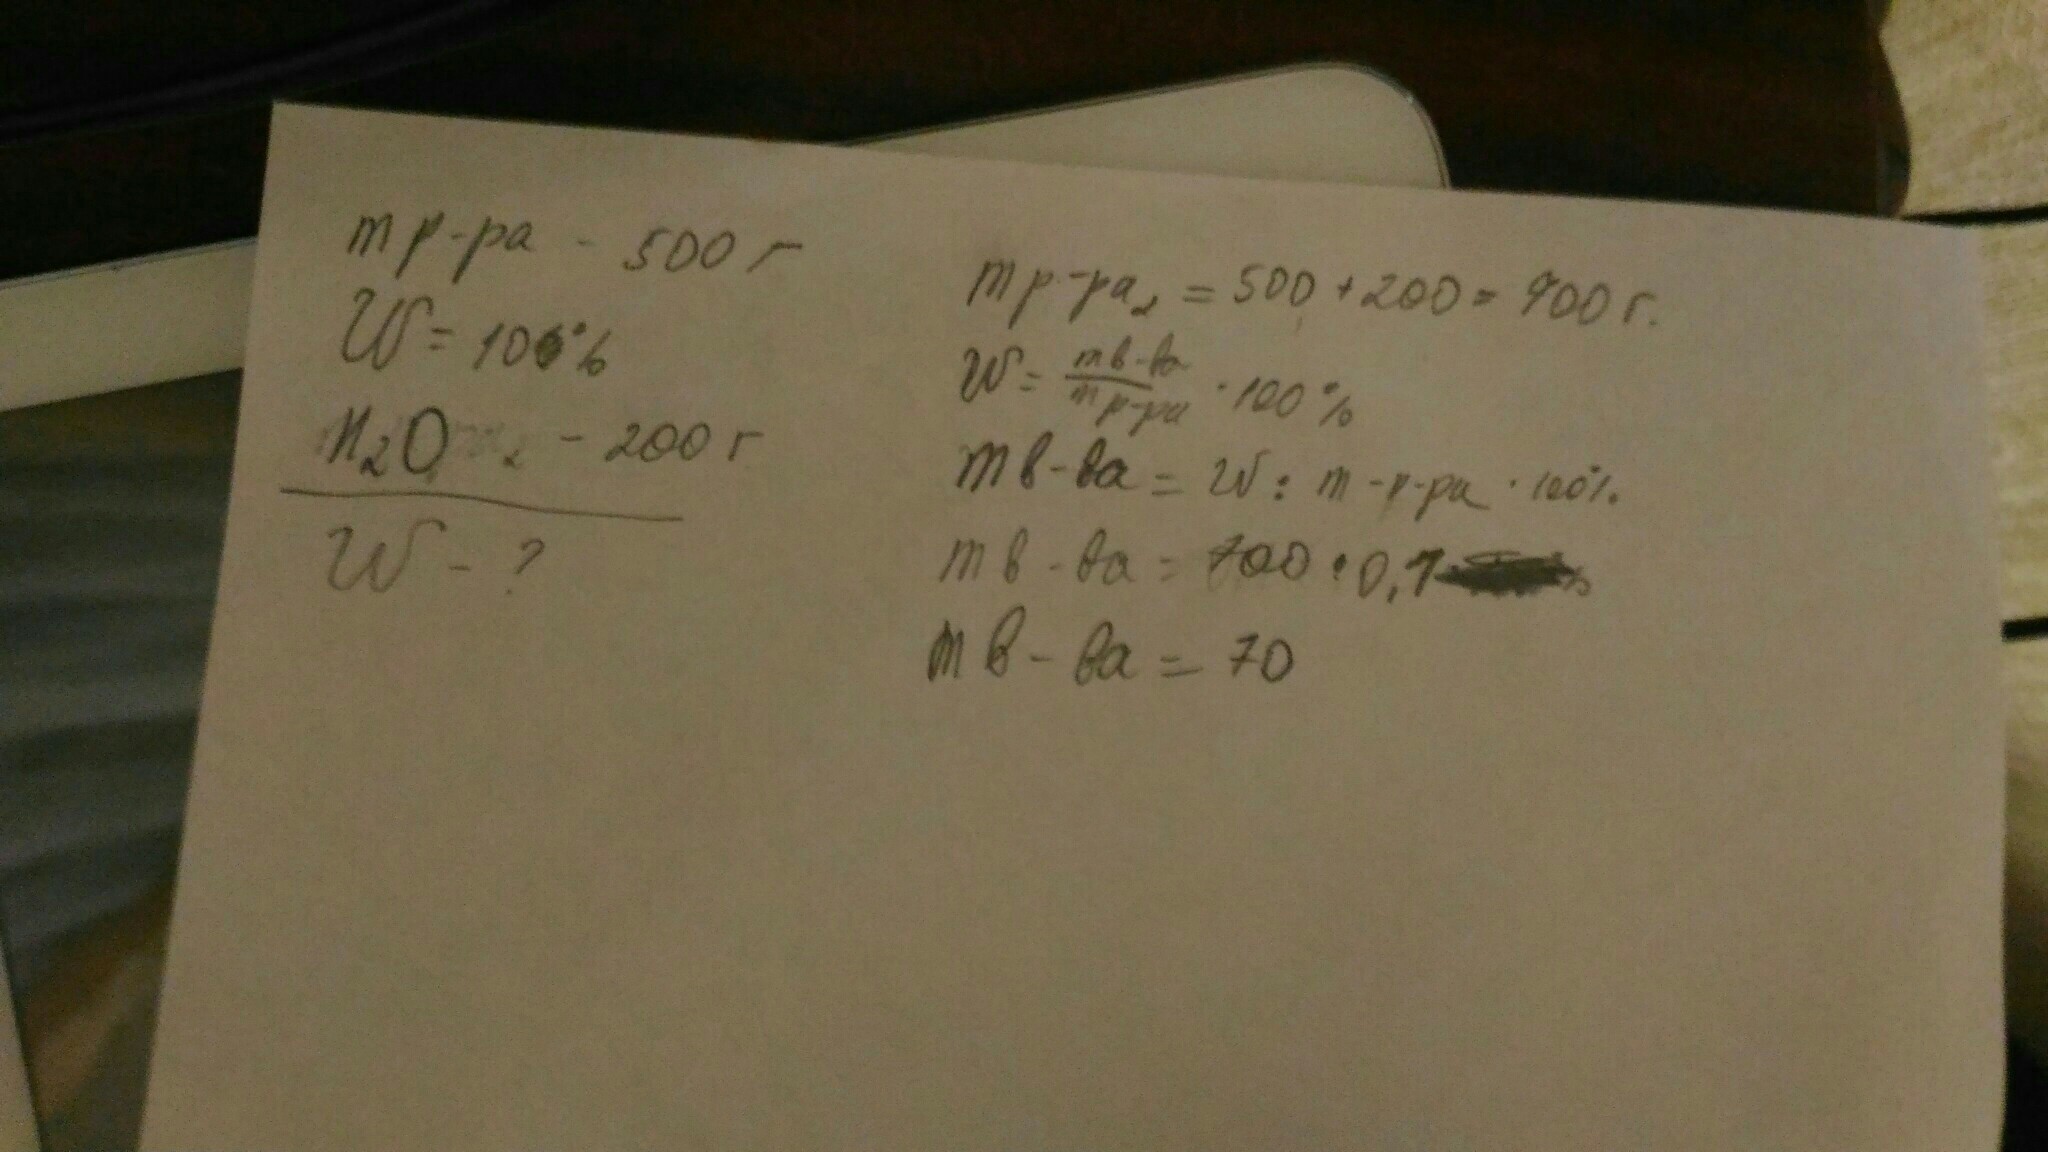 m р-ра - 500 г
W = 10%
H₂O - 200 г
W - ?
m р-ра₂ = 500 + 200 = 700 г.
W = m в-ва / m р-ра · 100%
m в-ва = W : m - р-ра · 100%.
m в-ва = 700 · 0,1
m в-ва = 70